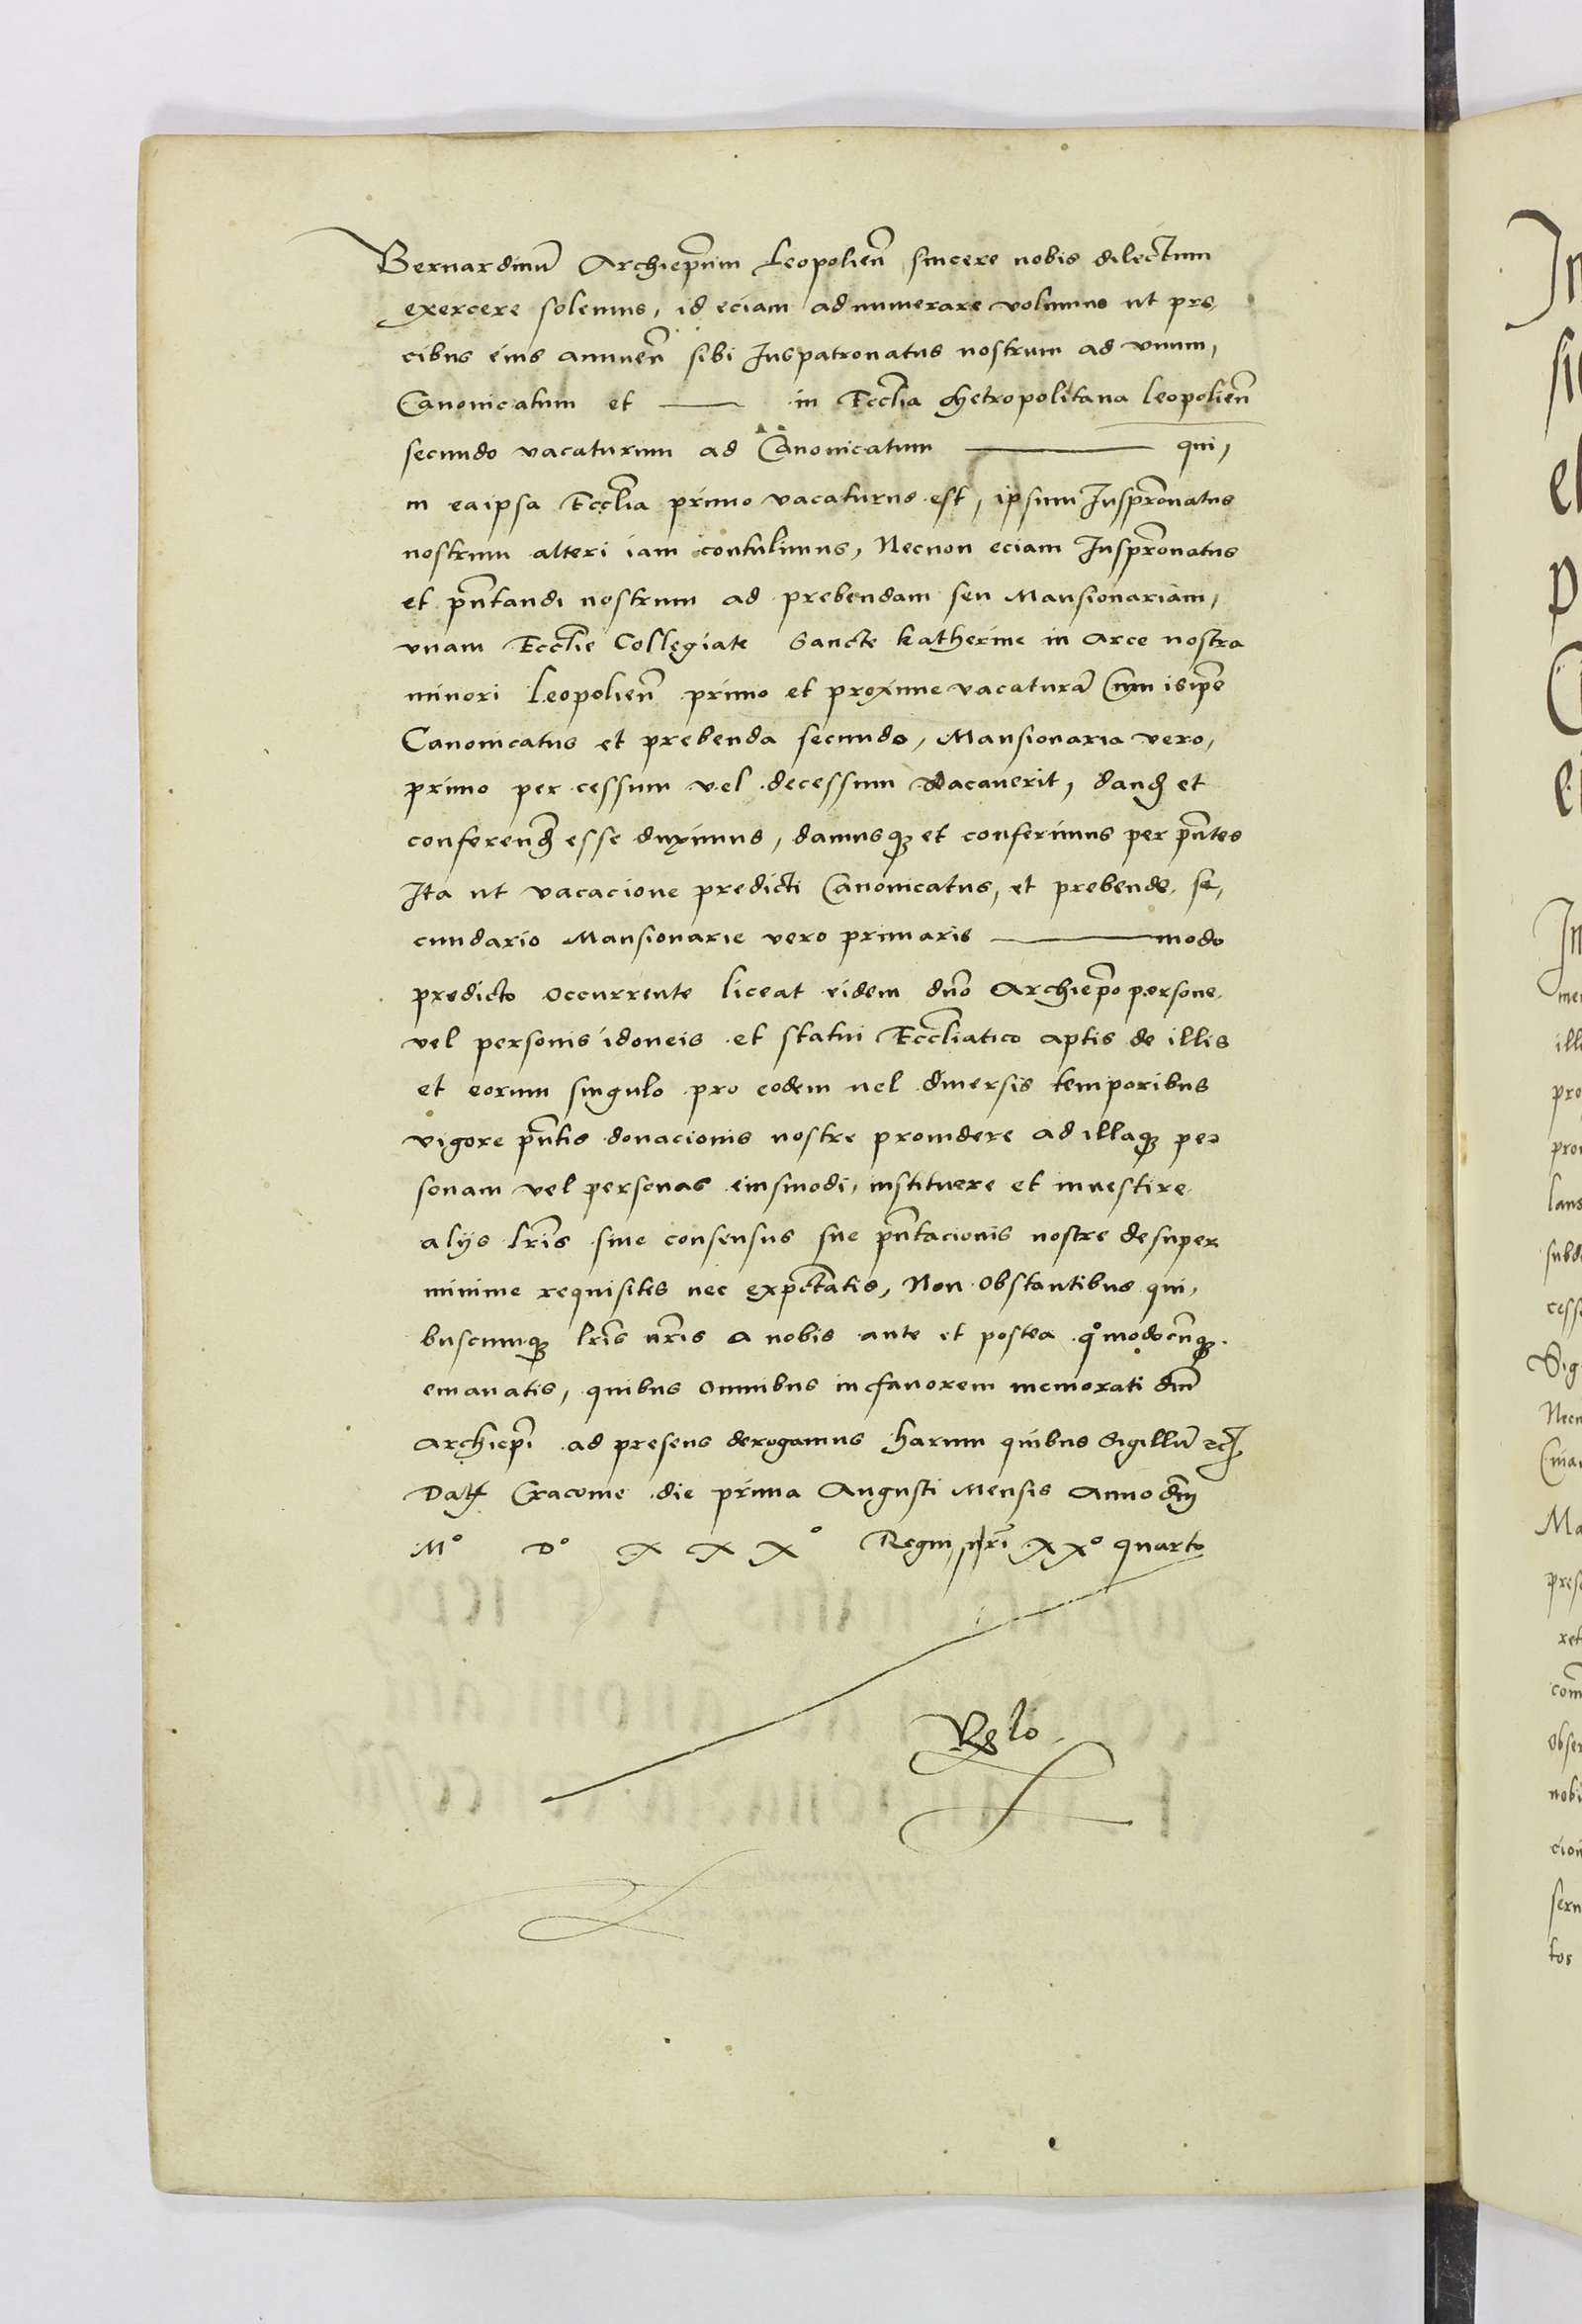 Bernardinū Archiepūm Leopolieñ sincere nobis dilectum
exercere solemus, id eciam adnumerare volumus ut pre,
cibus eius annueñ sibi Juspatronatus nostrum ad vnum,
Canonicatum et —— in Ecclīa Metropolitana leopolieñ
secundo vacaturum ad Canonicatum ——— qui,
in eaipsa Ecclīa primo vacaturus est, ipsum Juspr̄onatus
nostrum alteri iam contulimus, Necnon eciam Juspr̄onatus
et pn̄tandi nostrum ad prebendam seu Mansionariam,
vnam Ecclīe Collegiate Sancte katherine in Arce nostra
minori Leopolieñ primo et proxime vacaturā Cum isip̄e
Canonicatus et prebenda secundo, Mansionaria vero,
primo per cessum vel decessum vacauerit, danđ et
conferenđ esse duximus, damusqʒ et conferimus per pn̄tes
Ita ut vacacione predicti Canonicatus, et prebende se,
cundario Mansionarie vero primaris ——— modo
predicto occurrente liceat eidem dn̄o Archiep̄o persone
vel personis idoneis et statui Eccl̄iatico aptis de illis
et eorum singulo pro eodem uel diuersis temporibus
vigore pn̄tis donacionis nostre prouidere ad illaqʒ per
sonam vel personas eiusmodi, instituere et inuestire
alijs lr̄is siue consensus sue pn̄tacionis nostre desuper
minime requisitis nec expēctatis, Non obstantibus qui,
buscumqʒ lr̄is nr̄is a nobis ante et postea qᵒmodocūqʒ
emanatis, quibus omnibus in fauorem memorati dn̄i
Archiep̄i ad presens derogamus harum quibus Sigillū ⁊cͣ
Datʒ Cracouie die prima Augusti Mensis Anno dn̄i
Mᵒ Dᵒ X X Xᵒ Regni nr̄i XXᵒ quarto